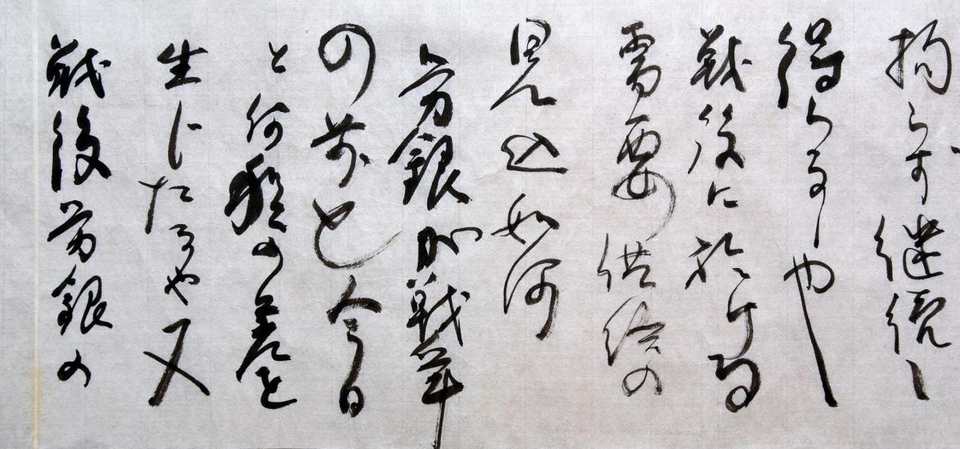 拘らず継続し
得らるゝや
戦後に於ける
需要供給の
見込如何
労銀が戦争
の前と今日
と何程の差を
生じたるや又
戦後労銀の